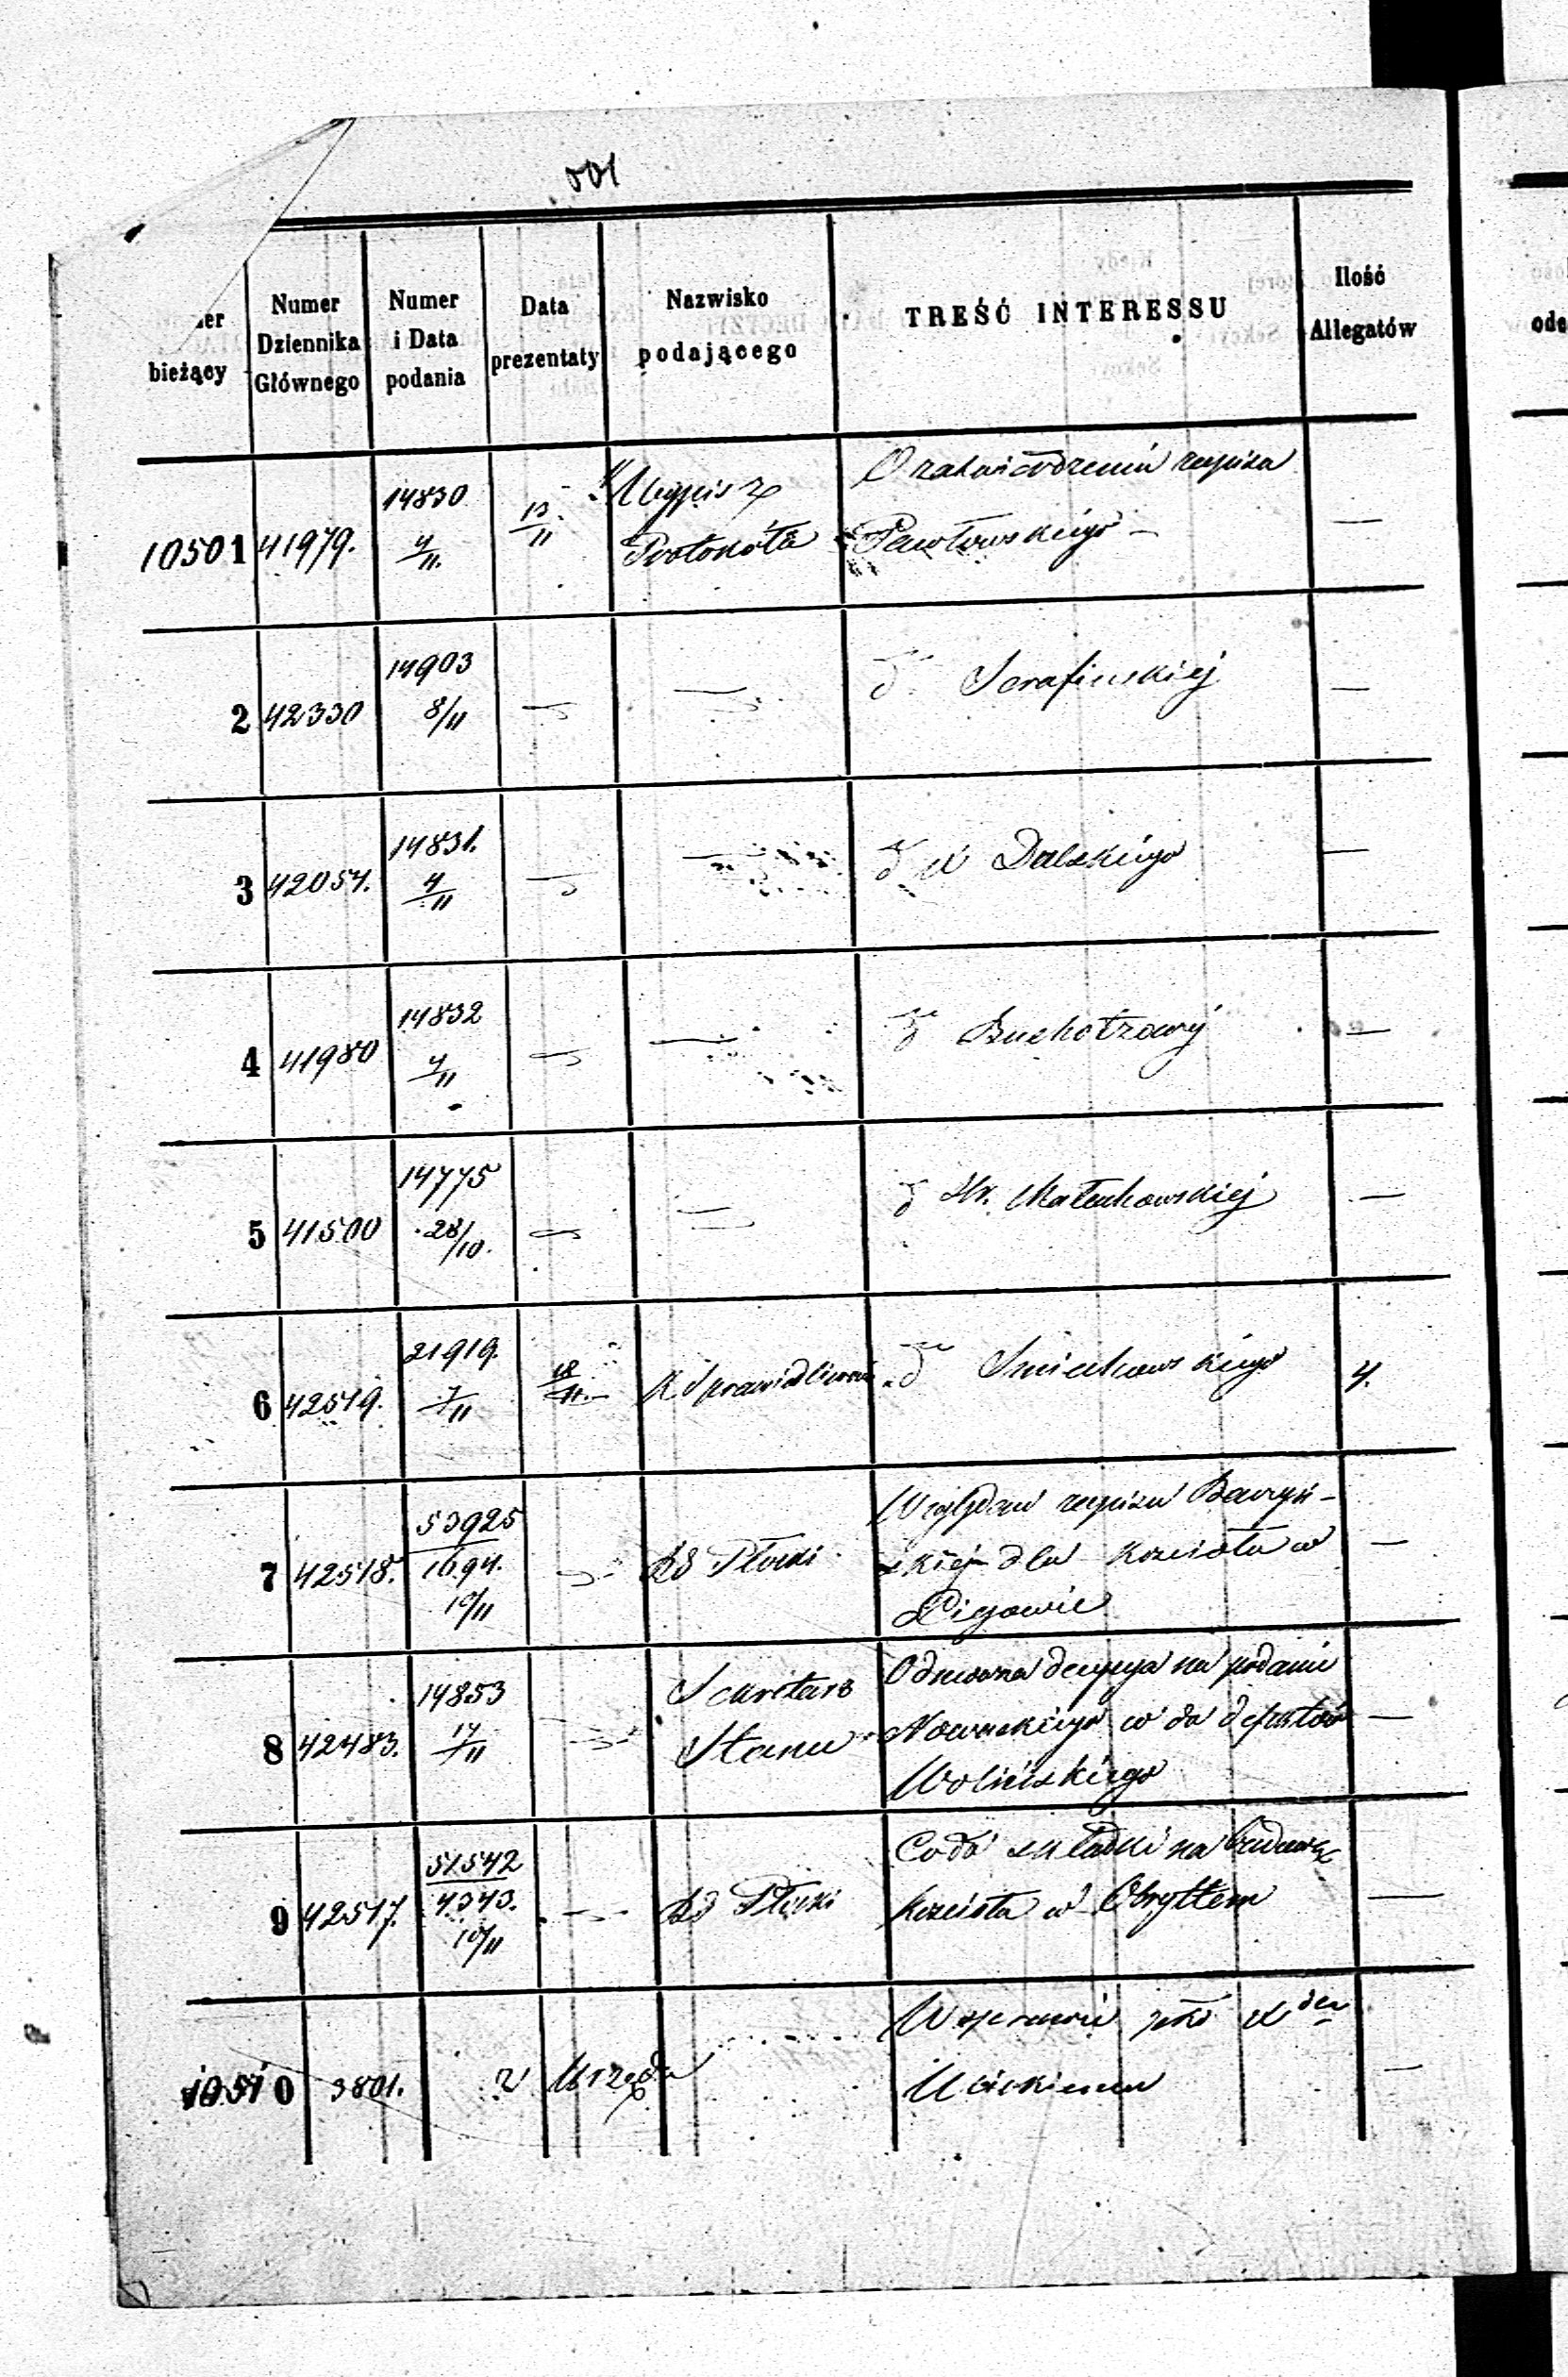 501
Numer bieżący
Numer Dziennika Głównego
Numer i Data podania
Data prezentaty
Nazwisko podającego
TREŚĆ INTERESSU
Ilość Allegatów
10501 41979. 14830 4/11. 13/11 Wypis z Protokółu O zatwierdzeniu zapisu Pawłowskiego —
2 42330 14903 8/11 — — do Serafinskiej —
3 42054. 14831. 4/11 — — do Dalskiego —
4 41980 14832 4/11 — — do —
5 41500 14775 28/10. — — do Hr. Małachowskiej —
6 42519. 21919. 7/11 18/11. K Sprawiedliwości do Smiechowskiego 4.
7 42518. 53925 1694. 10/11 — RG Płocki Względem zapisu dla kościoła w —
8 42483. 14853 17/11 — Sekretarz Stanu Odmowna decyzya na podanie Nowackiego w do Wolińskiego —
9 42517. 51542 4343. 10/11 — RG Płocki Co do składki na budowę kościoła w Obrytem —
10510 3801. z Urzędu W sprawie